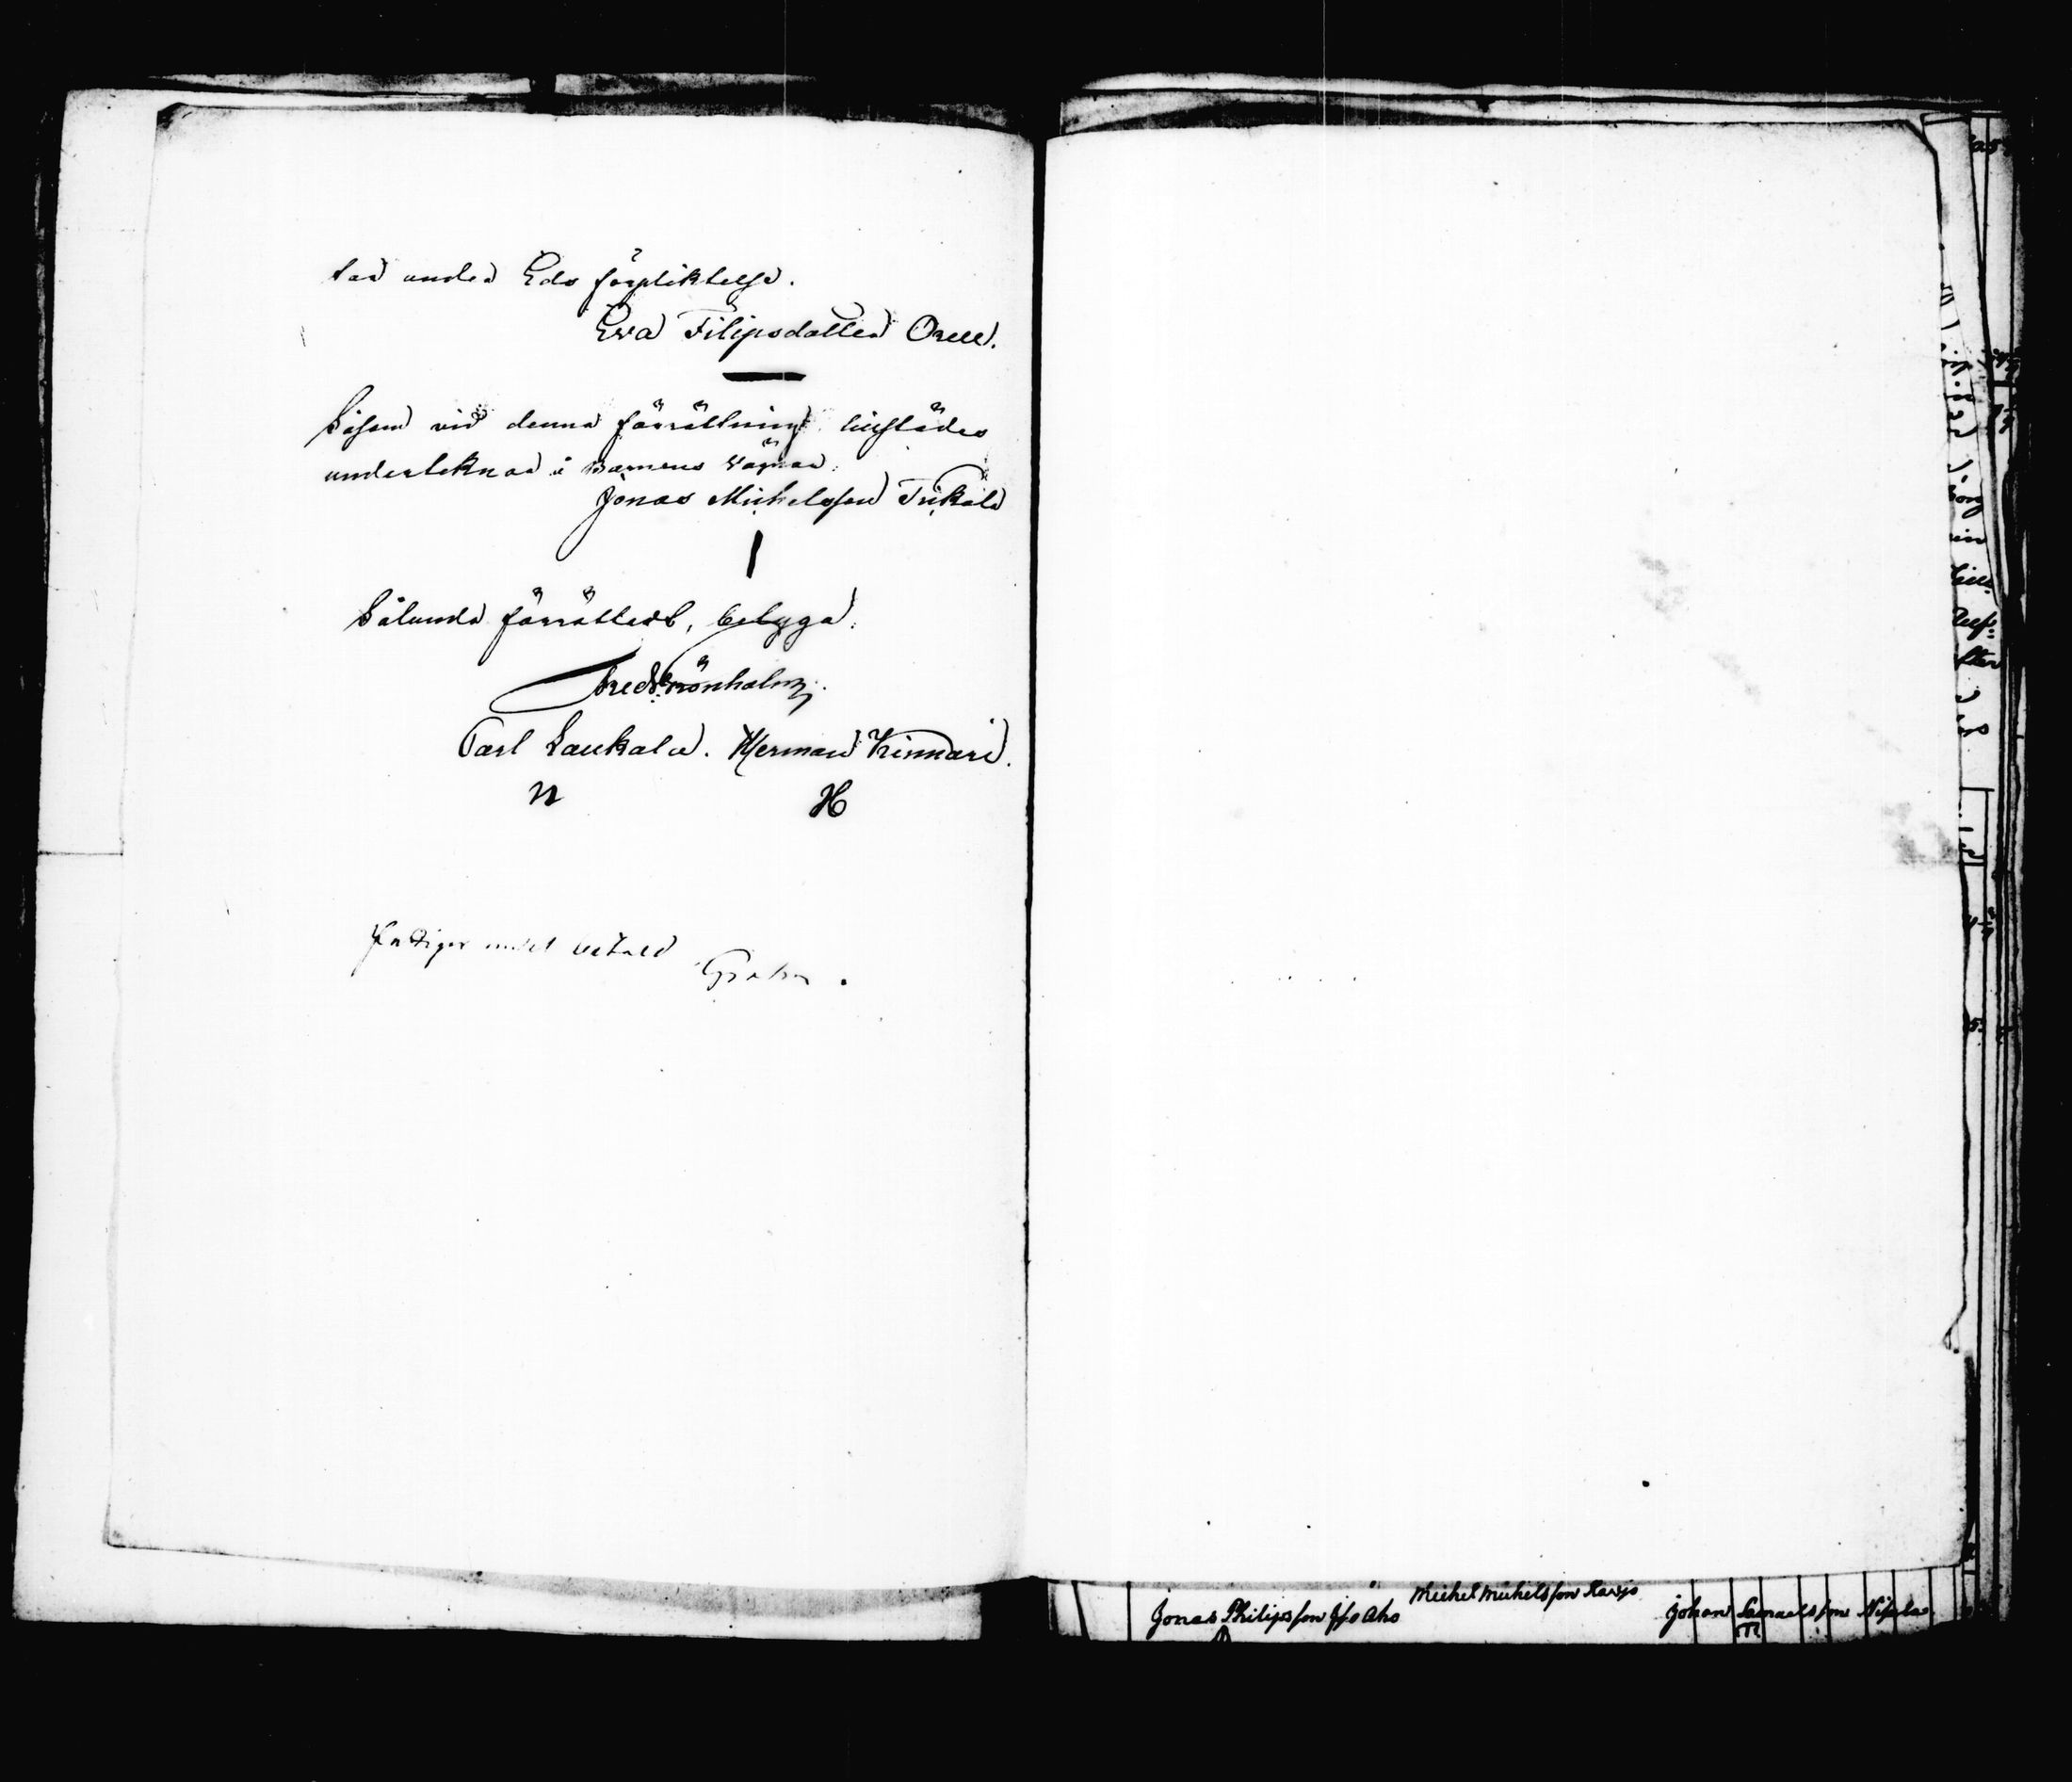 tar under Eds förpliktelse.
Eva Filipsdotter Orell.
Såsom vid denna förrättning tillstädes
undertecknar å Barnens vägnar:
Jonas Michelsson Trikala
Sålunda förrättadt, betyga:
Fred Grönholm.
Carl Laukala. Herman Kinnari.
n H
Fattiga medel betald
Jonas Philipsson Iso Aho
Michel Michelsson Karjo
Johan Samuelsson Nissola